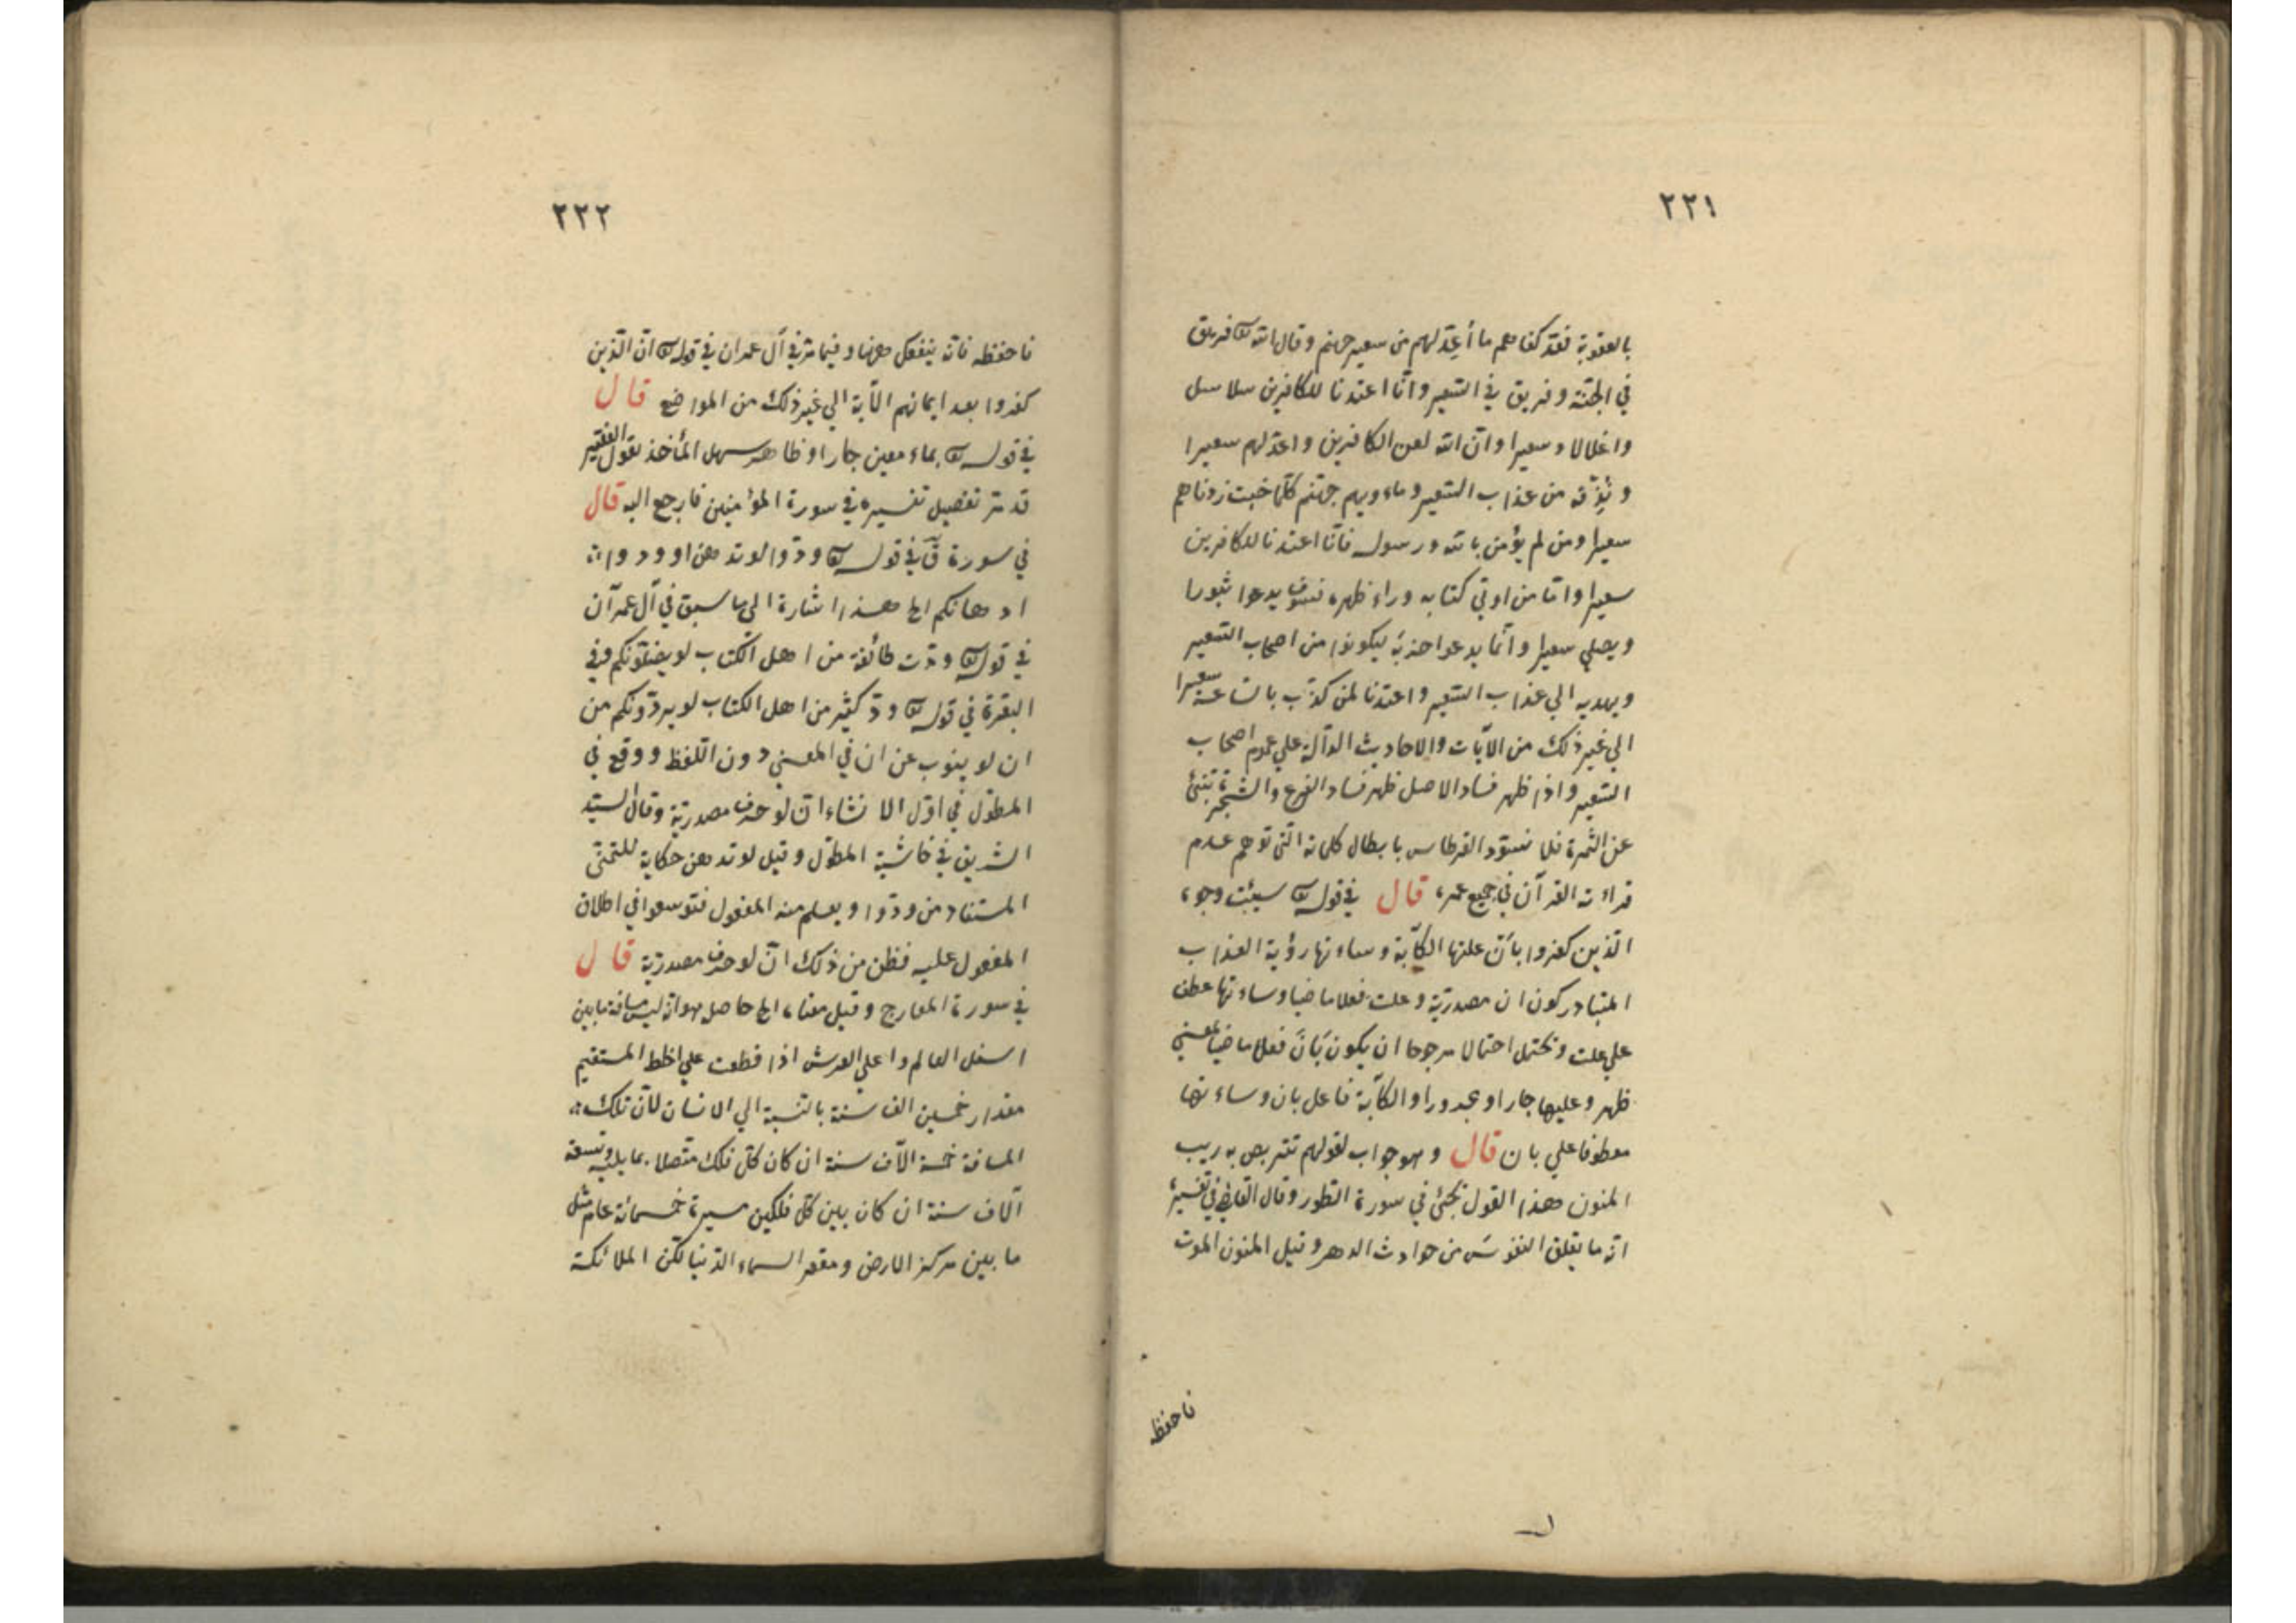 ٢٢١
بالعقوبة فقد كفاهم ما أعتد لهم من سعير جهنم وقال الله تع فريق
في الجنّة وفريق في السّعير وانّا اعتدنا للكافرين سلاسل
واغلالا وسعيرا وانّ الله لعن الكافرين واعدّ لهم سعيرا
و نُذِقْه من عذاب السّعير وماويهم جهنّم كلّما خبت زدناهم
سعيرا ومن لم يؤمن بالله ورسوله فانّا اعتدنا للكافرين
سعيرا وامّا من اوتي كتابه وراء ظهره فسوف يدعوا ثبورا
ويصلي سعيرا وانّما يدعوا حزبَه ليكونوا من اصحاب السّعير
ويهديه الي عذاب السّعير واعتدنا لمن كذّب بالسّاعة سعيرا
الي غير ذلك من الآيات والاحاديث الدّالة علي عموم اصحاب
السّعير واذا ظهر فساد الاصل ظهر فساد الفرع والشّجرة تنبئ
عن الثّمرة فلا نسوّد القرطاس بابطال كلماته الّتي توهم عدم
قراءته القرآن في جميع عمره قال في قوله تع سيئت وجوه
الّذين كفروا بان علتها الكآبة وساءتها رؤية العذاب
المتبادر كون ان مصدريّة وعلت فعلا ماضيا وساءتها عطف
علي علت ويحتمل احتمالا مرجوحا ان يكون بَانَ فعلا ماضيا بمعني
ظهر وعليها جارا ومجرورا والكآبة فاعل بان وساءتها
معطوفا علي بان قال وهو جواب لقولهم نتربص به ريب
المنون هذا القول يجئ في سورة الطور وقال القاضي في تفسيره
انه ما يقلق النفوسَ من حوادث الدهر وقيل المنون الموت
فاحفظه
٢٢٢
فاحفظه فانّه ينفعك ههنا وفيما مرّ في آل عمران في قوله تع انّ الّذين
كفروا بعد ايمانهم الآية الي غير ذلك من المواضع قال
في قوله تع بماء معين جار او ظاهر سهل المأخذ يقول الفقير
قد مرّ تفصيل تفسيره في سورة المؤمنين فارجع اليه قال
في سورة نٓ في قوله تع ودّوا لو تدهن اوودوا
ادهانكم الخ هذا اشارة الي ما سبق في آل عمرآن
في قوله تع ودّت طائفة من اهل الكتاب لو يضلّونكم وفي
البقرة في قوله تع ودّ كثير من اهل الكتاب لو يردّونكم من
ان لو ينوب عن ان في المعني دون اللّفظ ووقع في
المطوّل في اوّل الانشاء انّ لو حرف مصدريّة وقال السيّد
الشريف في حاشية المطوّل وقيل لو تدهن حكاية للتمنّي
المستفاد من ودّوا ويعلم منه المفعول فتوسعوا في اطلاق
المفعول عليه فظن من ذلك انّ لو حرف مصدريّة قال
في سورة المعارج وقيل معناه الخ حاصل هو انه ليس مسافة ما بين
اسفل العالم واعلي العرش اذا قطعت علي الخط المستقيم
مقدار خمسين الف سنة بالنّسبة الي الانسان لانّ تلك
المسافة خمسة الآف سنة ان كان كلّ فلك متّصلا بما يليه وتسعة
آلاف سنة ان كان بين كلّ فلكين مسيرة خمسمائة عام مثل
ما بين مركز الارض ومقعر السماء الدّنيا لكن الملائكة